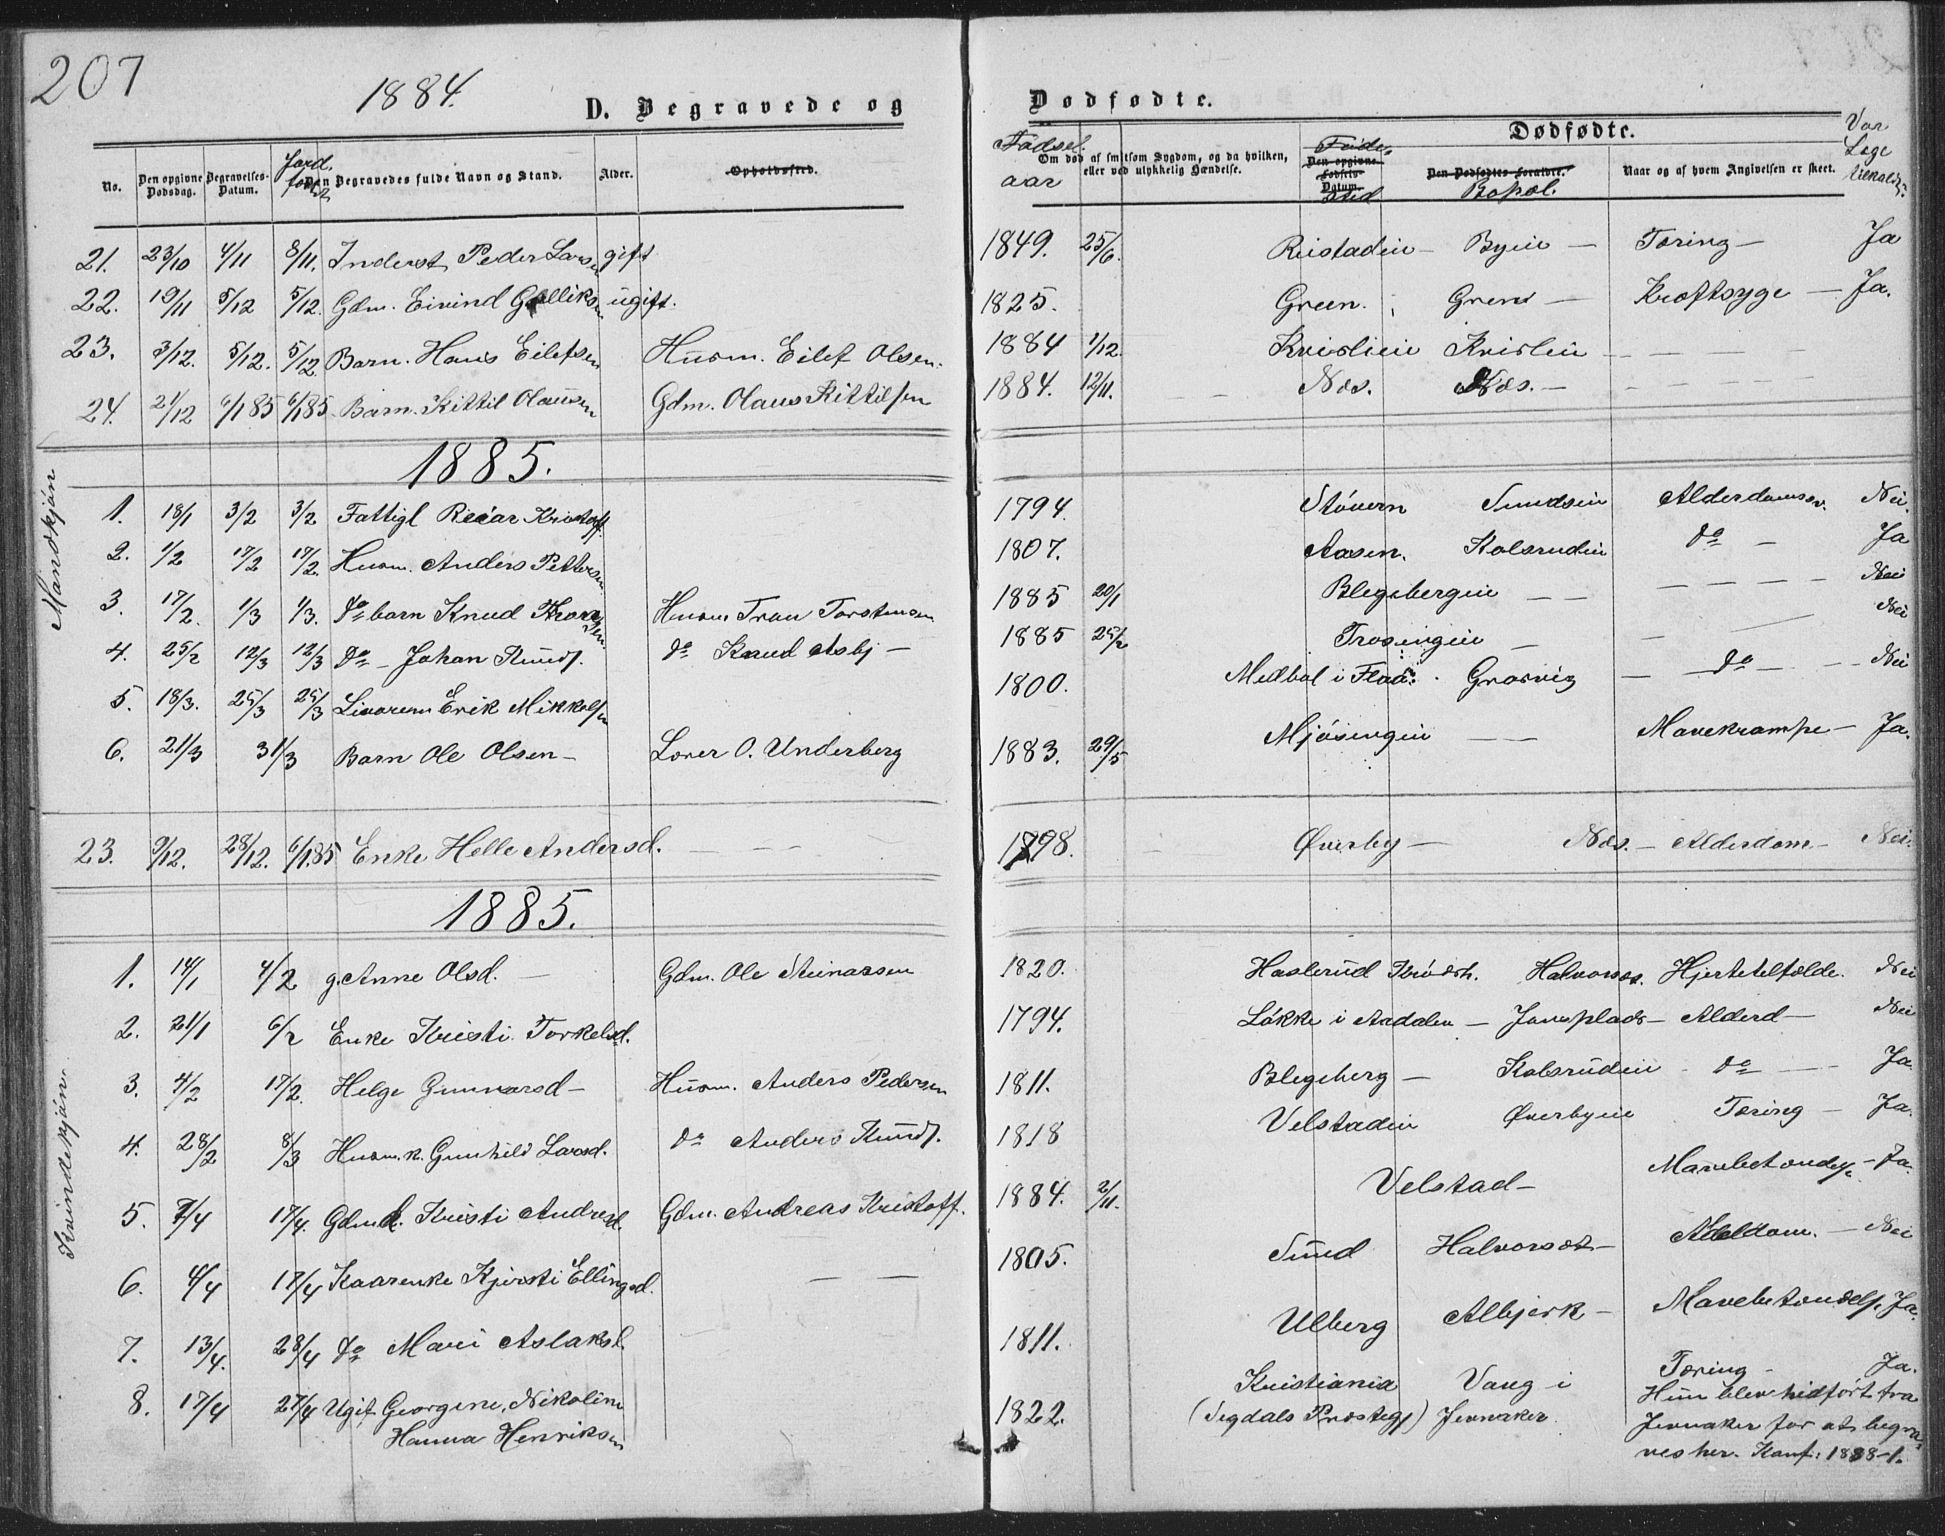 207
1884.
D. Begravede og Dødfødte.
No. Den opgivne Dødsdag. Begravelses-Datum. Jord. Den Begravedes fulde Navn og Stand. Alder. Opholdssted. Fødsel. aar Om død af smitsom Sygdom, og da hvilken, eller ved ulykkelig Hændelse. Føde. Den opgivne Fødsels-Datum. sted Dødfødte. Den Dødfødtes Forældre. Bopæl. Naar og af hvem Angivelsen er skeet. Var Læge tilkaldt?
21. 23/10 4/11 8/11. Inderst Peder Larsen gift 1849. 25/6. Reistadeie — Byeie — Tæring — Ja
22. 19/11 5/12 5/12. Gdm. Eivind Gulliksen ugift. 1825. Green. Grens — Kræftsyge — Ja.
23. 3/12. 5/12. 5/12. Barn. Hans Eilefsen Husm. Eilef Olsen. 1884 1/12. Kvislieie Kvisleie — — — —
24. 21/12 6/1 85 6/1 85 Barn. Kittil Olausen Gdm. Olaus Kittilsen 1884. 12/11. Næs. Næs. — — — — —
Mandkjøn
1885.
1. 18/1 3/2 3/2 Fattigl Reiar Kristoff. 1794. Støvern Sundseie Alderdomssv. Nei.
2. 1/2 17/2 17/2. Husm. Anders Pettersen 1807. Aasen. Kolsrudeie do — Ja
3. 17/2. 1/3 1/3. do barn Knud Thorsen Husm Tron Torstensen 1885 20/1 Blegebergeie — — — — — — Nei
4. 25/2 12/3 12/3 do — Johan Knuds. do Knud Asbj — 1885 25/2 Trosengeie — — — Nei
5. 18/3. 25/3 25/3 Livørem Erik Mikkelsen 1800. Medbøl i Flaa. Græsvig — do — — Nei
6. 21/3 31/3 Barn Ole Olsen — Lærer O. Underberg 1883. 29/5 Mjøsengeie — — Mavekrampe — Ja.
23. 9/12. 28/12. 6/1 85 Enke Helle Andersd. — — — 1798. Øverby — Næs. — Alderdom — Nei.
1885.
Kvindekjøn
1. 14/1 4/2 g. Anne Olsd. — Gdm. Ole Steinarsen 1820. Haslerud Krødsh. Halvorsøs. Hjertetilfælde. Nei
2. 21/1 6/2 Enke Kristi Torkelsd. 1794. Løkke i Aadalen — Jonsplads — Alderd — Nei
3. 4/2 17/2. Helge Gunnarsd — Husm. Anders Pedersen 1811. Blegeberg — Kolsrudeie — do — Ja
4. 28/2 8/3 Husm. k. Gunhild Larsd. do Anders Knuds. 1818 Velstadeie Øverbyeie Tæring — Ja.
5. 7/4 17/4. Gdmd. Kristi Andersd. Gdm. Andreas Kristoff. 1884. 2/11. Velstad — — Ja.
6. 4/4 17/4 Kaarenke Kjersti Ellingsd. — — 1805. Sund Halvorsøs — Alderdom. — Nei
7. 13/4. 28/4 do Mari Aslaksd. 1811. Ulberg Albjerk — Mavebetændels. Ja.
8. 17/4 27/4 Ugift Georgine, Nikoline Hanna Henriksen 1822. Kristiania (Sigdals Præstegj) Vang i Jevnaker. Tæring — Ja.
Hun blev hidført fra
Jevnaker for at begra-
ves her. Konf: 1838-1.